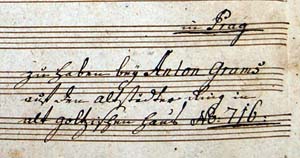 in Prag
zu haben bey Anton Grams
auf den altstädter Ring in
alt goltzischen Haus No. 716.